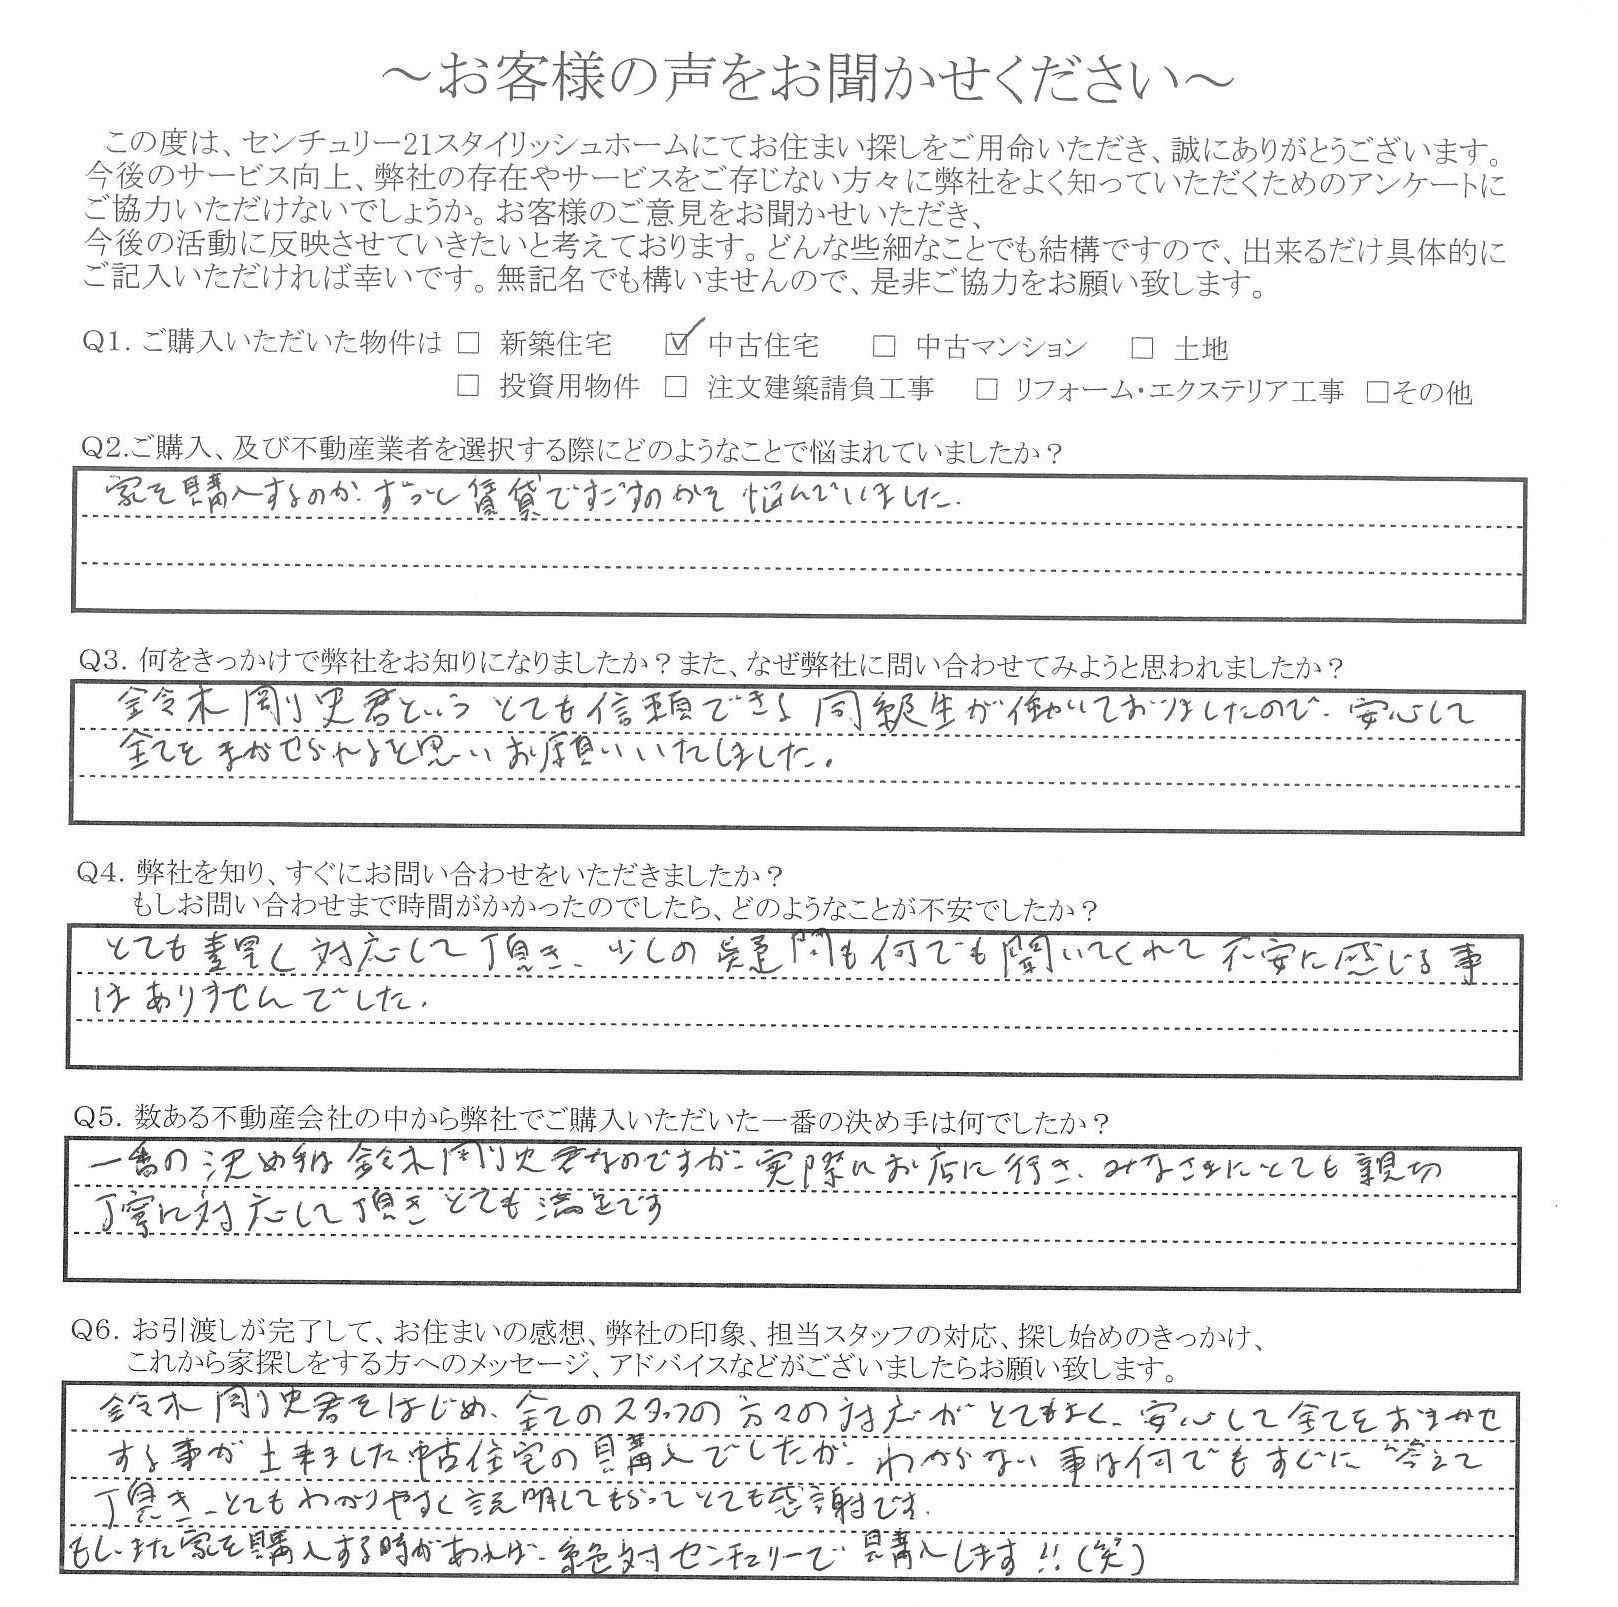 ～お客様の声をお聞かせください～
この度は、センチュリー21スタイリッシュホームにてお住まい探しをご用命いただき、誠にありがとうございます。
今後のサービス向上、弊社の存在やサービスをご存じない方々に弊社をよく知っていただくためのアンケートに
ご協力いただけないでしょうか。お客様のご意見をお聞かせいただき、
今後の活動に反映させていきたいと考えております。どんな些細なことでも結構ですので、出来るだけ具体的に
ご記入いただければ幸いです。無記名でも構いませんので、是非ご協力をお願い致します。
Q1. ご購入いただいた物件は □ 新築住宅 ☑ 中古住宅 □ 中古マンション □ 土地
□ 投資用物件 □ 注文建築請負工事 □ リフォーム・エクステリア工事 □その他
Q2.ご購入、及び不動産業者を選択する際にどのようなことで悩まれていましたか？
家を購入するのか、ずっと賃貸ですごすのかを悩んでいました。
Q3. 何をきっかけで弊社をお知りになりましたか？また、なぜ弊社に問い合わせてみようと思われましたか？
鈴木剛史君という とても信頼できる 同級生が働いておりましたので、安心して
全てをまかせられると思いお願いいたしました。
Q4. 弊社を知り、すぐにお問い合わせをいただきましたか？
もしお問い合わせまで時間がかかったのでしたら、どのようなことが不安でしたか？
とても素早く対応して頂き、少しの疑問も何でも聞いてくれて不安に感じる事
はありませんでした。
Q5. 数ある不動産会社の中から弊社でご購入いただいた一番の決め手は何でしたか？
一番の決め手は鈴木剛史君なのですが、実際にお店に行き、みなさまにとても親切
丁寧に対応して頂きとても満足です
Q6. お引渡しが完了して、お住まいの感想、弊社の印象、担当スタッフの対応、探し始めのきっかけ、
これから家探しをする方へのメッセージ、アドバイスなどがございましたらお願い致します。
鈴木剛史君をはじめ、全てのスタッフの方々の対応がとてもよく、安心して全てをおまかせ
する事が出来ました 中古住宅の購入でしたが、わからない事は何でもすぐに答えて
頂き、とてもわかりやすく説明してもらってとても感謝です。
もし、また家を購入する時があれば、絶対センチュリーで購入します!!(笑)